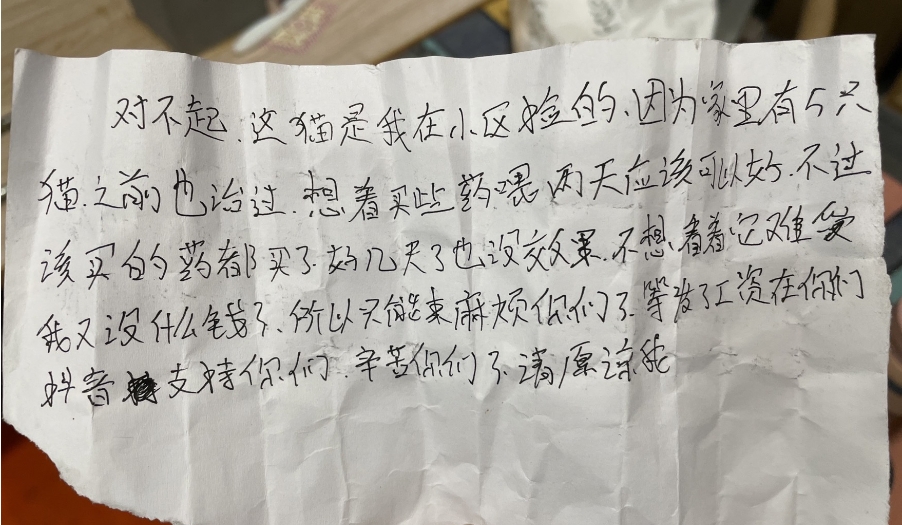 对不起.这猫是我在小区捡的.因为家里有5只
猫.之前也治过.想着买些药喂两天应该可以好.不过
该买的药都买了.好几天了也没效果.不想看着它难受
我又没什么钱了.所以只能来麻烦你们了.等发了工资在你们
抖音支持你们.辛苦你们了.请原谅我